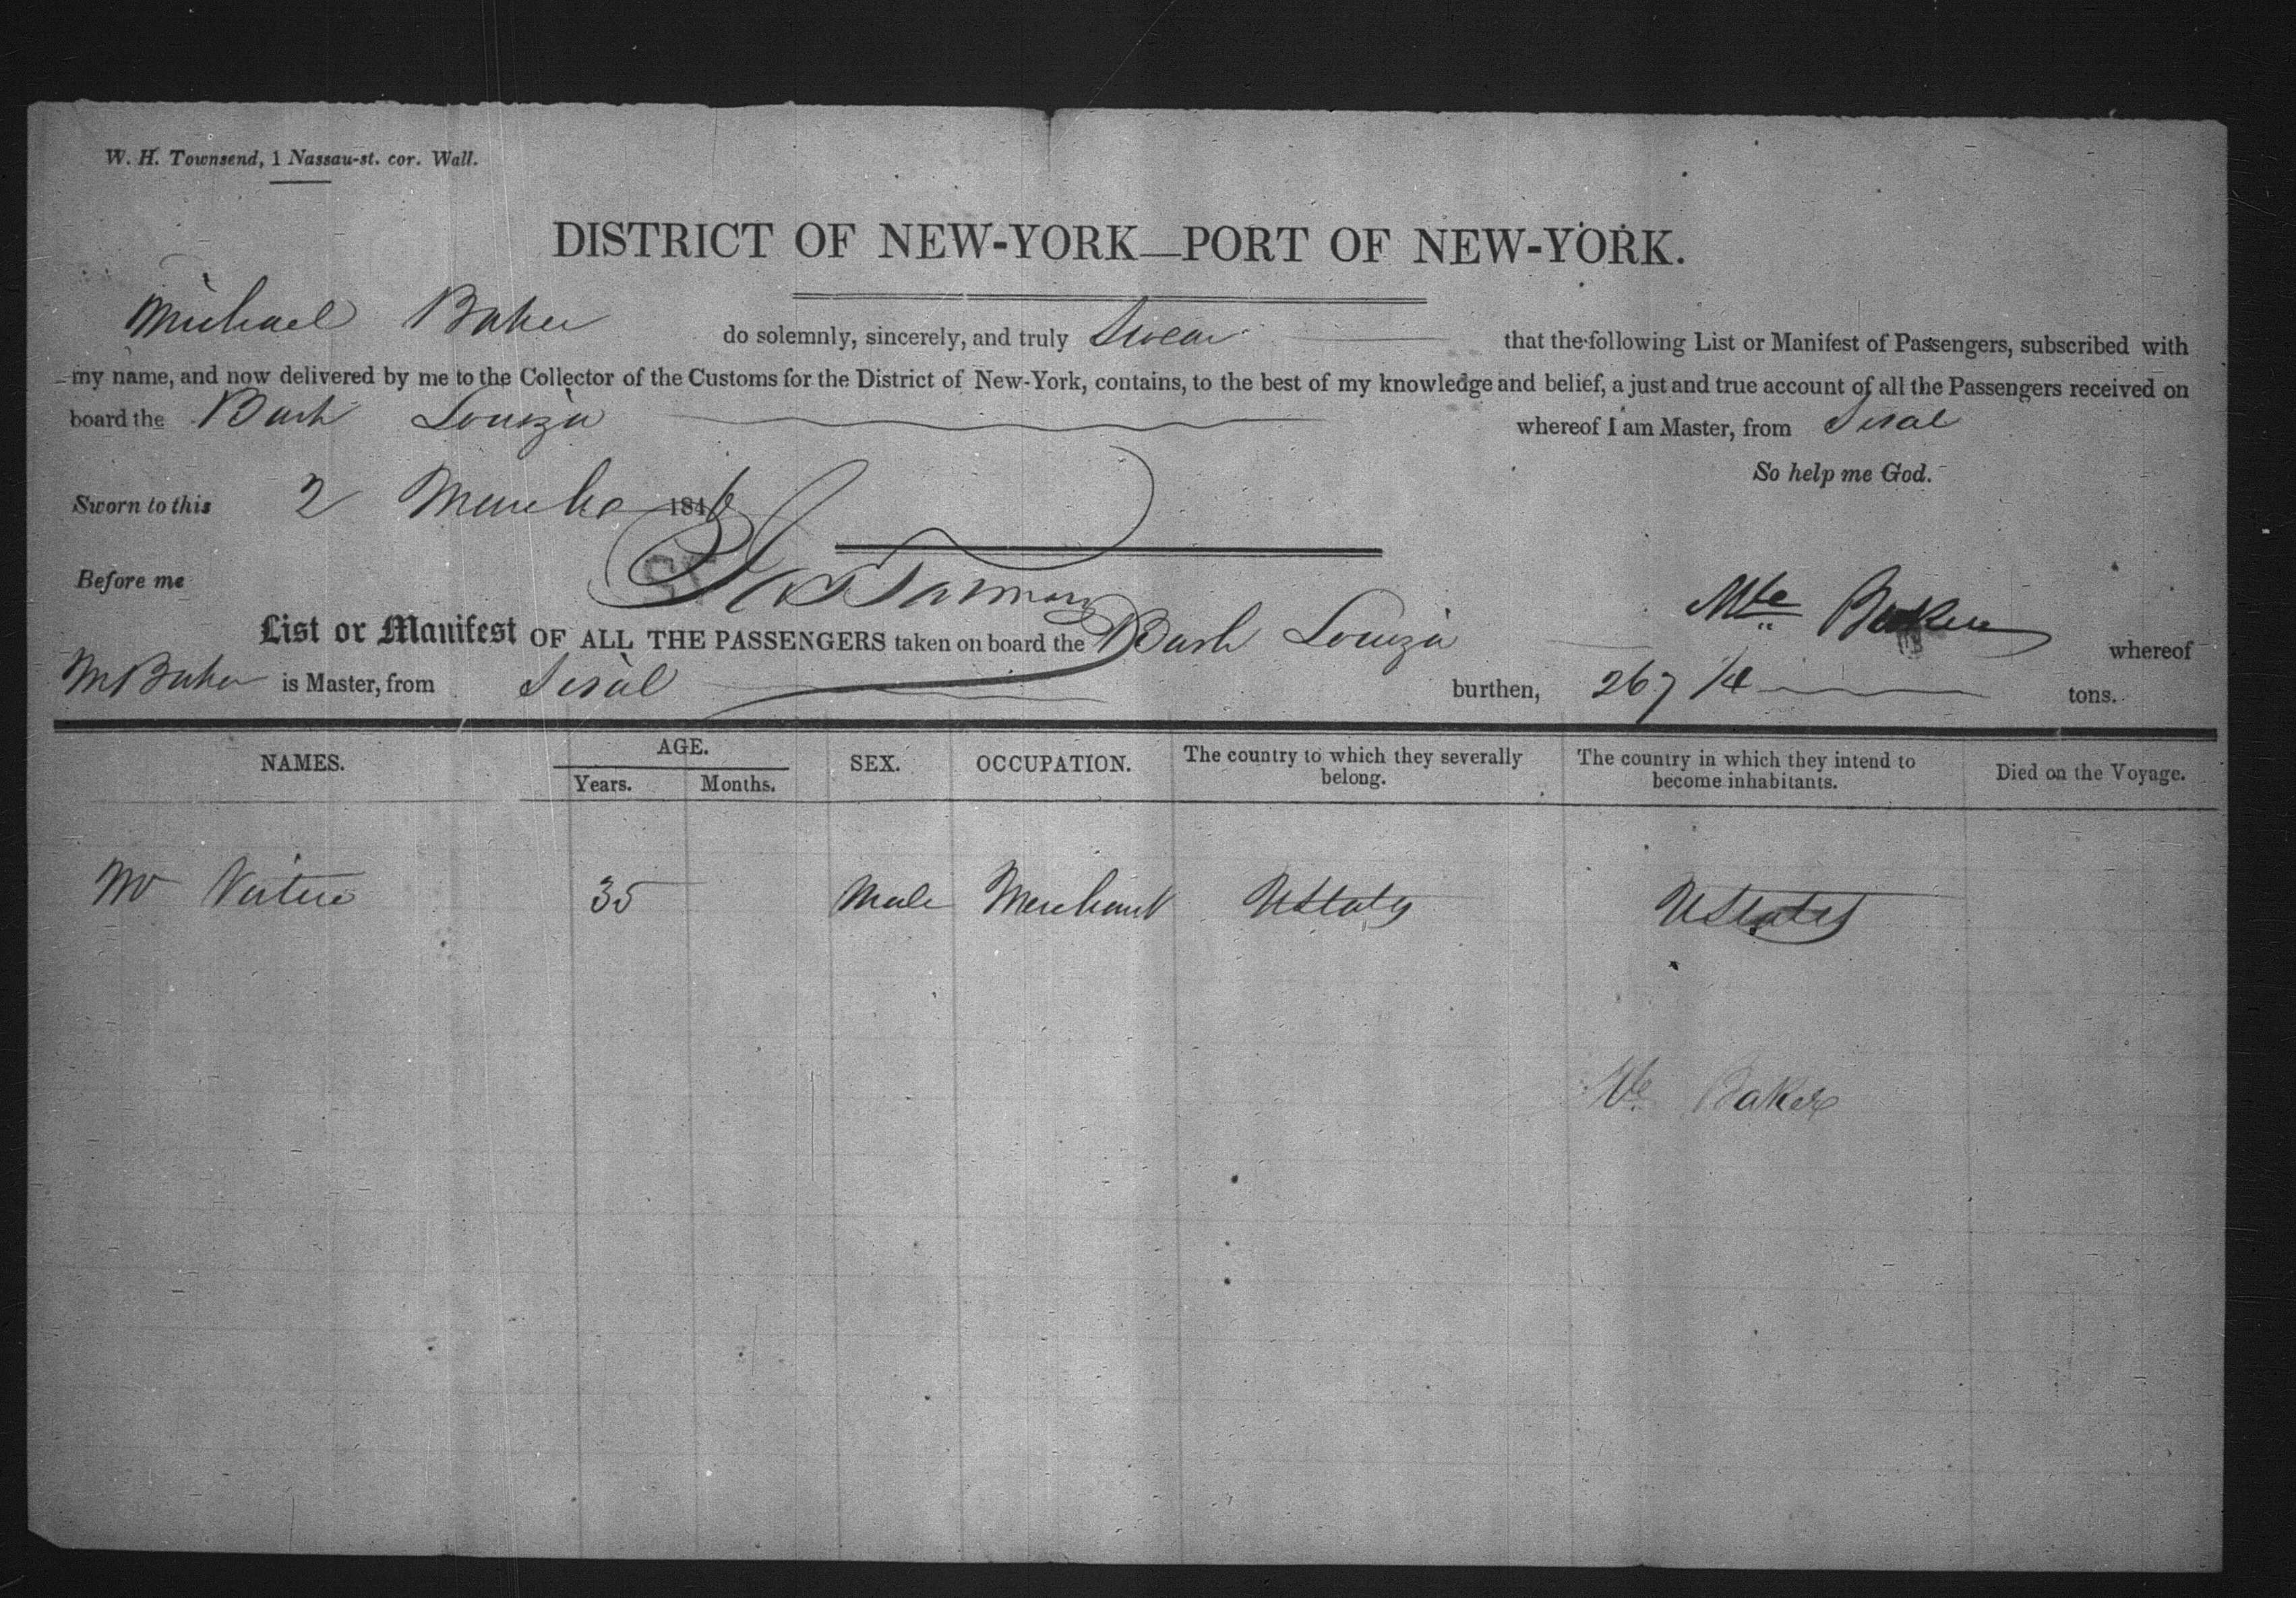 W. H. Townsend, 1 Nassau-st. cor. Wall.
DISTRICT OF NEW-YORK—PORT OF NEW-YORK.
Michael Baker do solemnly, sincerely, and truly Swear that the following List or Manifest of Passengers, subscribed with
my name, and now delivered by me to the Collector of the Customs for the District of New-York, contains, to the best of my knowledge and belief, a just and true account of all the Passengers received on
board the Bark Louiza whereof I am Master, from Sisal
So help me God.
Sworn to this 2 March 1846
Before me
Baker
List or Manifest OF ALL THE PASSENGERS taken on board the Bark Louiza whereof
M Baker is Master, from Sisal burthen, 267 tons.
NAMES. AGE. Years. Months. SEX. OCCUPATION. The country to which they severally belong. The country in which they intend to become inhabitants. Died on the Voyage.
Mr Virtue 35 Male Merchant UStates UStates
Baker